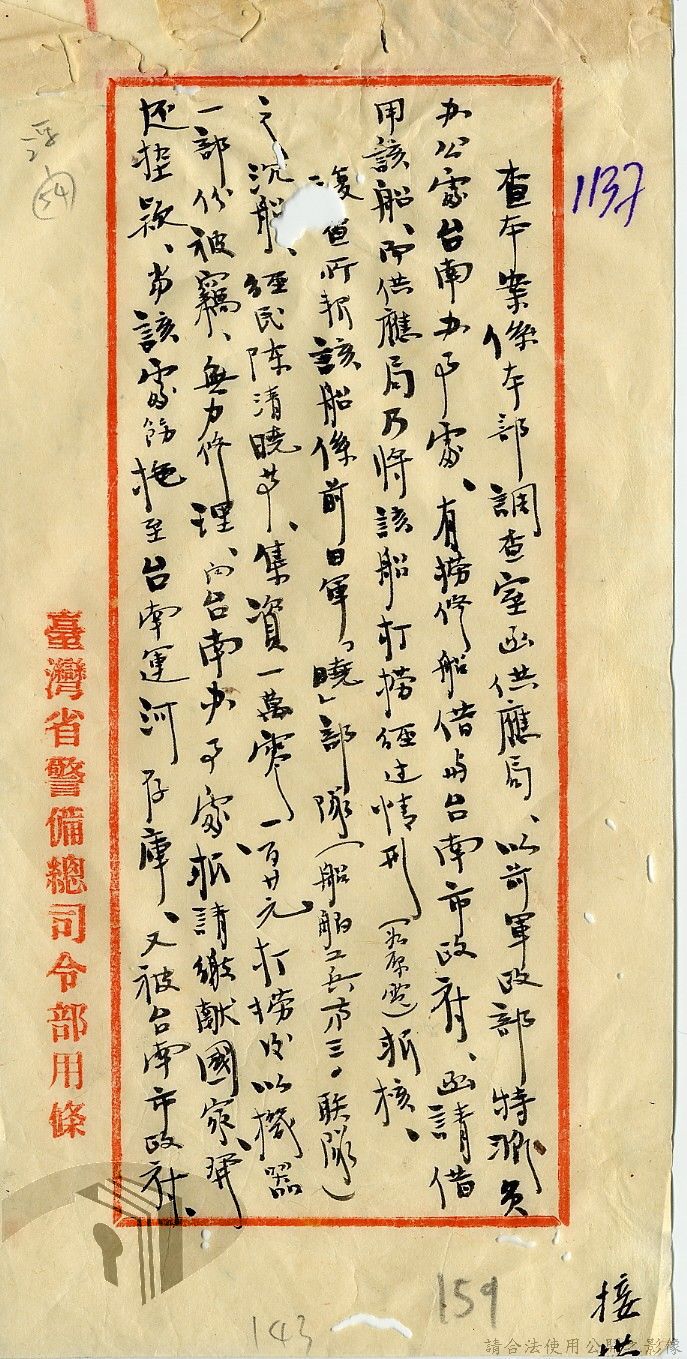 1137
查本案係本部調查室函供應局、以前軍政部特派員
办公處台南办事處、有撈修船借与台南市政府、函請借
用該船、而供應局乃將該船打撈經过情形(如原電)報核、
復查所報該船係前日軍「曉」部隊(船舶工兵第三〇联隊)
之沉船、經民陈清曉等、集資一萬零一百廿元打撈後以機器
一部份被竊、無力修理、向台南办事處報請繳献國家、
还墊款、當該處飭拖至台南運河存庫、又被台南市政府、
臺灣省警備總司令部用條
54
159
143
接
請合法使用公開之影像